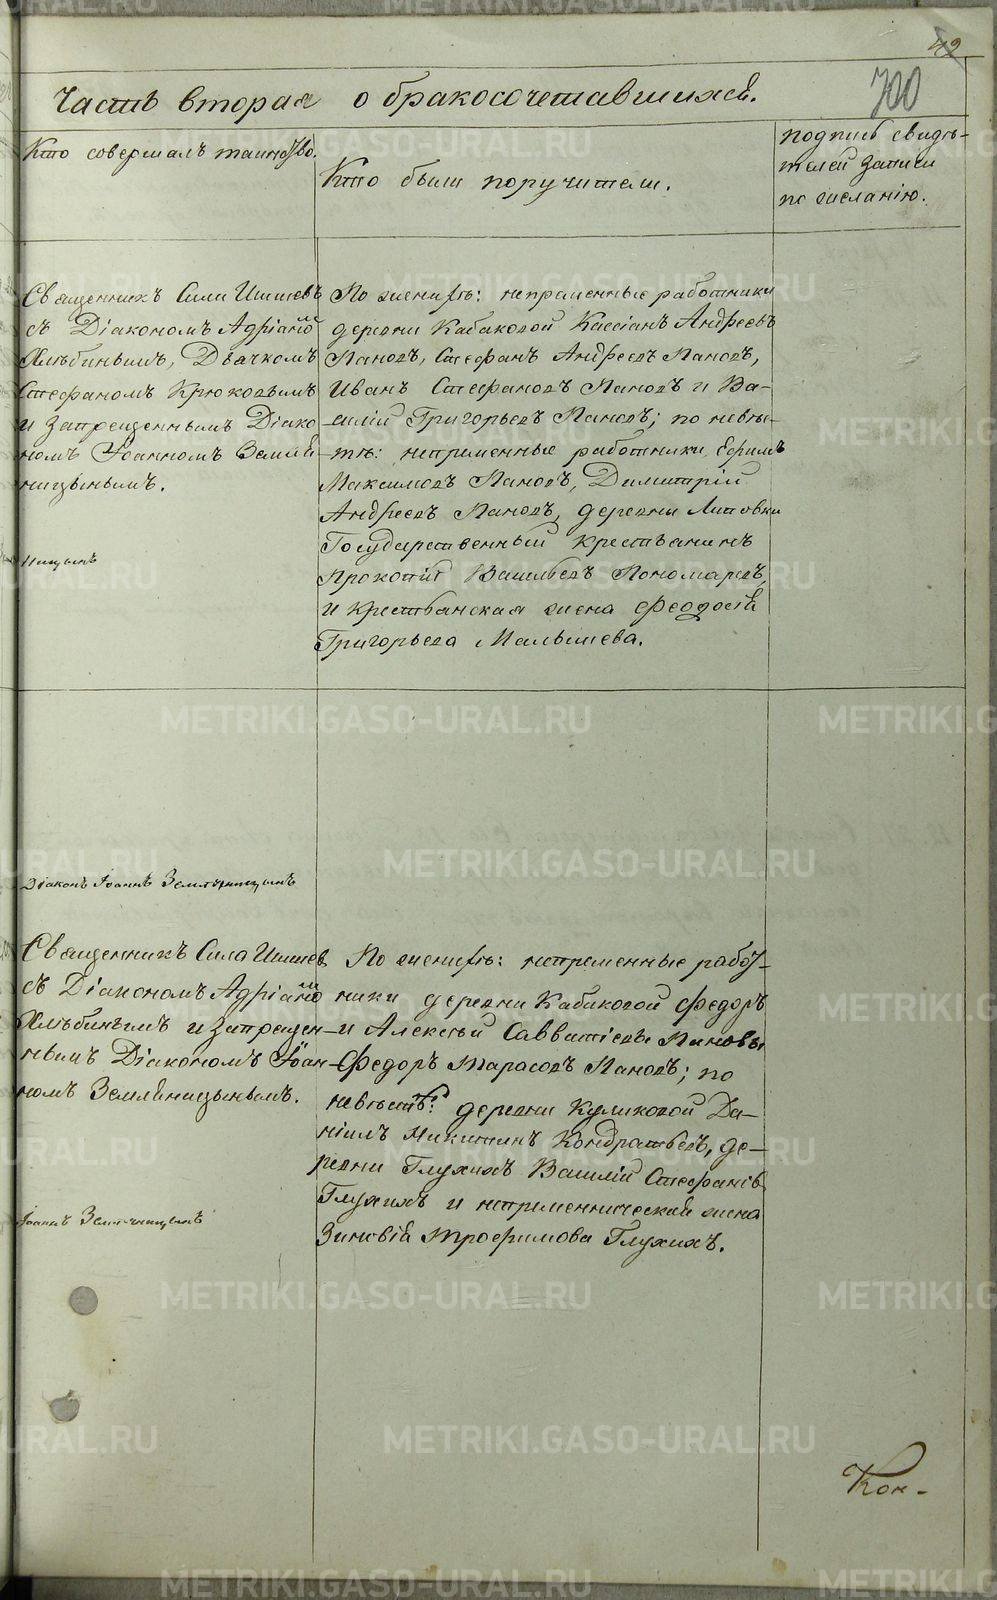 49
700
Часть вторая о бракосочетавшихся.
Кто совершалъ таинство.
Кто были поручители.
подпись свидѣ-
телей записи
по желанію.
Священникъ Сила Ишимевъ
съ Діакономъ Адріаномъ
Хлѣбинымъ, Дьячкомъ
Стефаномъ Крюковымъ
и запрещеннымъ Діако-
номъ Іоанномъ Земляницынымъ.
По женихѣ: непременные работники
деревни Кабаковой Кассіанъ Андреевъ
Пановъ, Стефанъ Андреевъ Пановъ,
Иванъ Стефановъ Пановъ и Ва-
силій Григорьевъ Пановъ; по невѣ-
стѣ: непременные работники Ефимъ
Максимовъ Пановъ, Димитрій
Андреевъ Пановъ, деревни Липовки
Государственный крестьянинъ
Прокопій Васильевъ Пономаревъ
и крестьянская жена Феодосія
Григорьева Малышева.
Діаконъ Іоаннъ Земляницынъ
Священникъ Сила Ишимевъ
съ Діакономъ Адріаномъ
Хлѣбинымъ и запрещен-
нымъ Діакономъ Іоан-
номъ Земляницынымъ.
По женихѣ: непременные работ-
ники деревни Кабаковой Федоръ
и Алексѣй Савватіевы Пановы
Федоръ Тарасовъ Пановъ; по
невѣстѣ: деревни Куликовой Да-
ніилъ Никитинъ Кондратьевъ, де-
ревни Глухихъ Василій Стефановъ
Глухихъ и непременническая жена
Зиновія Трофимова Глухихъ.
Іоаннъ Земляницынъ
Кон-
METRIKI.GASO-URAL.RU